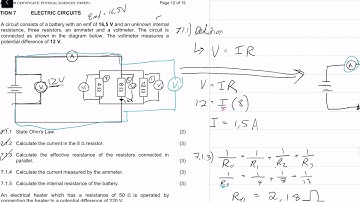 R CERTIFICATE: PHYSICAL SCIENCES: PAPER I
Page 12 of 15
TION 7 ELECTRIC CIRCUITS
Emf = 16,5V
A circuit consists of a battery with an emf of 16,5 V and an unknown internal
resistance, three resistors, an ammeter and a voltmeter. The circuit is
connected as shown in the diagram below. The voltmeter measures a
potential difference of 12 V.
A
V
12V
V
8 Ω
7.1.1 State Ohm's Law. (2)
7.1.2 Calculate the current in the 8 Ω resistor. (3)
7.1.3 Calculate the effective resistance of the resistors connected in
parallel. (3)
7.1.4 Calculate the current measured by the ammeter. (3)
7.1.5 Calculate the internal resistance of the battery. (3)
An electrical heater which has a resistance of 50 Ω is operated by
7.1.1)
V = IR
V = IR
12 = I (8)
I = 1,5A
7.1.3)
1/R11 = 1/R1 + 1/R2 + 1/R3
R11 = 2,18 Ω
A